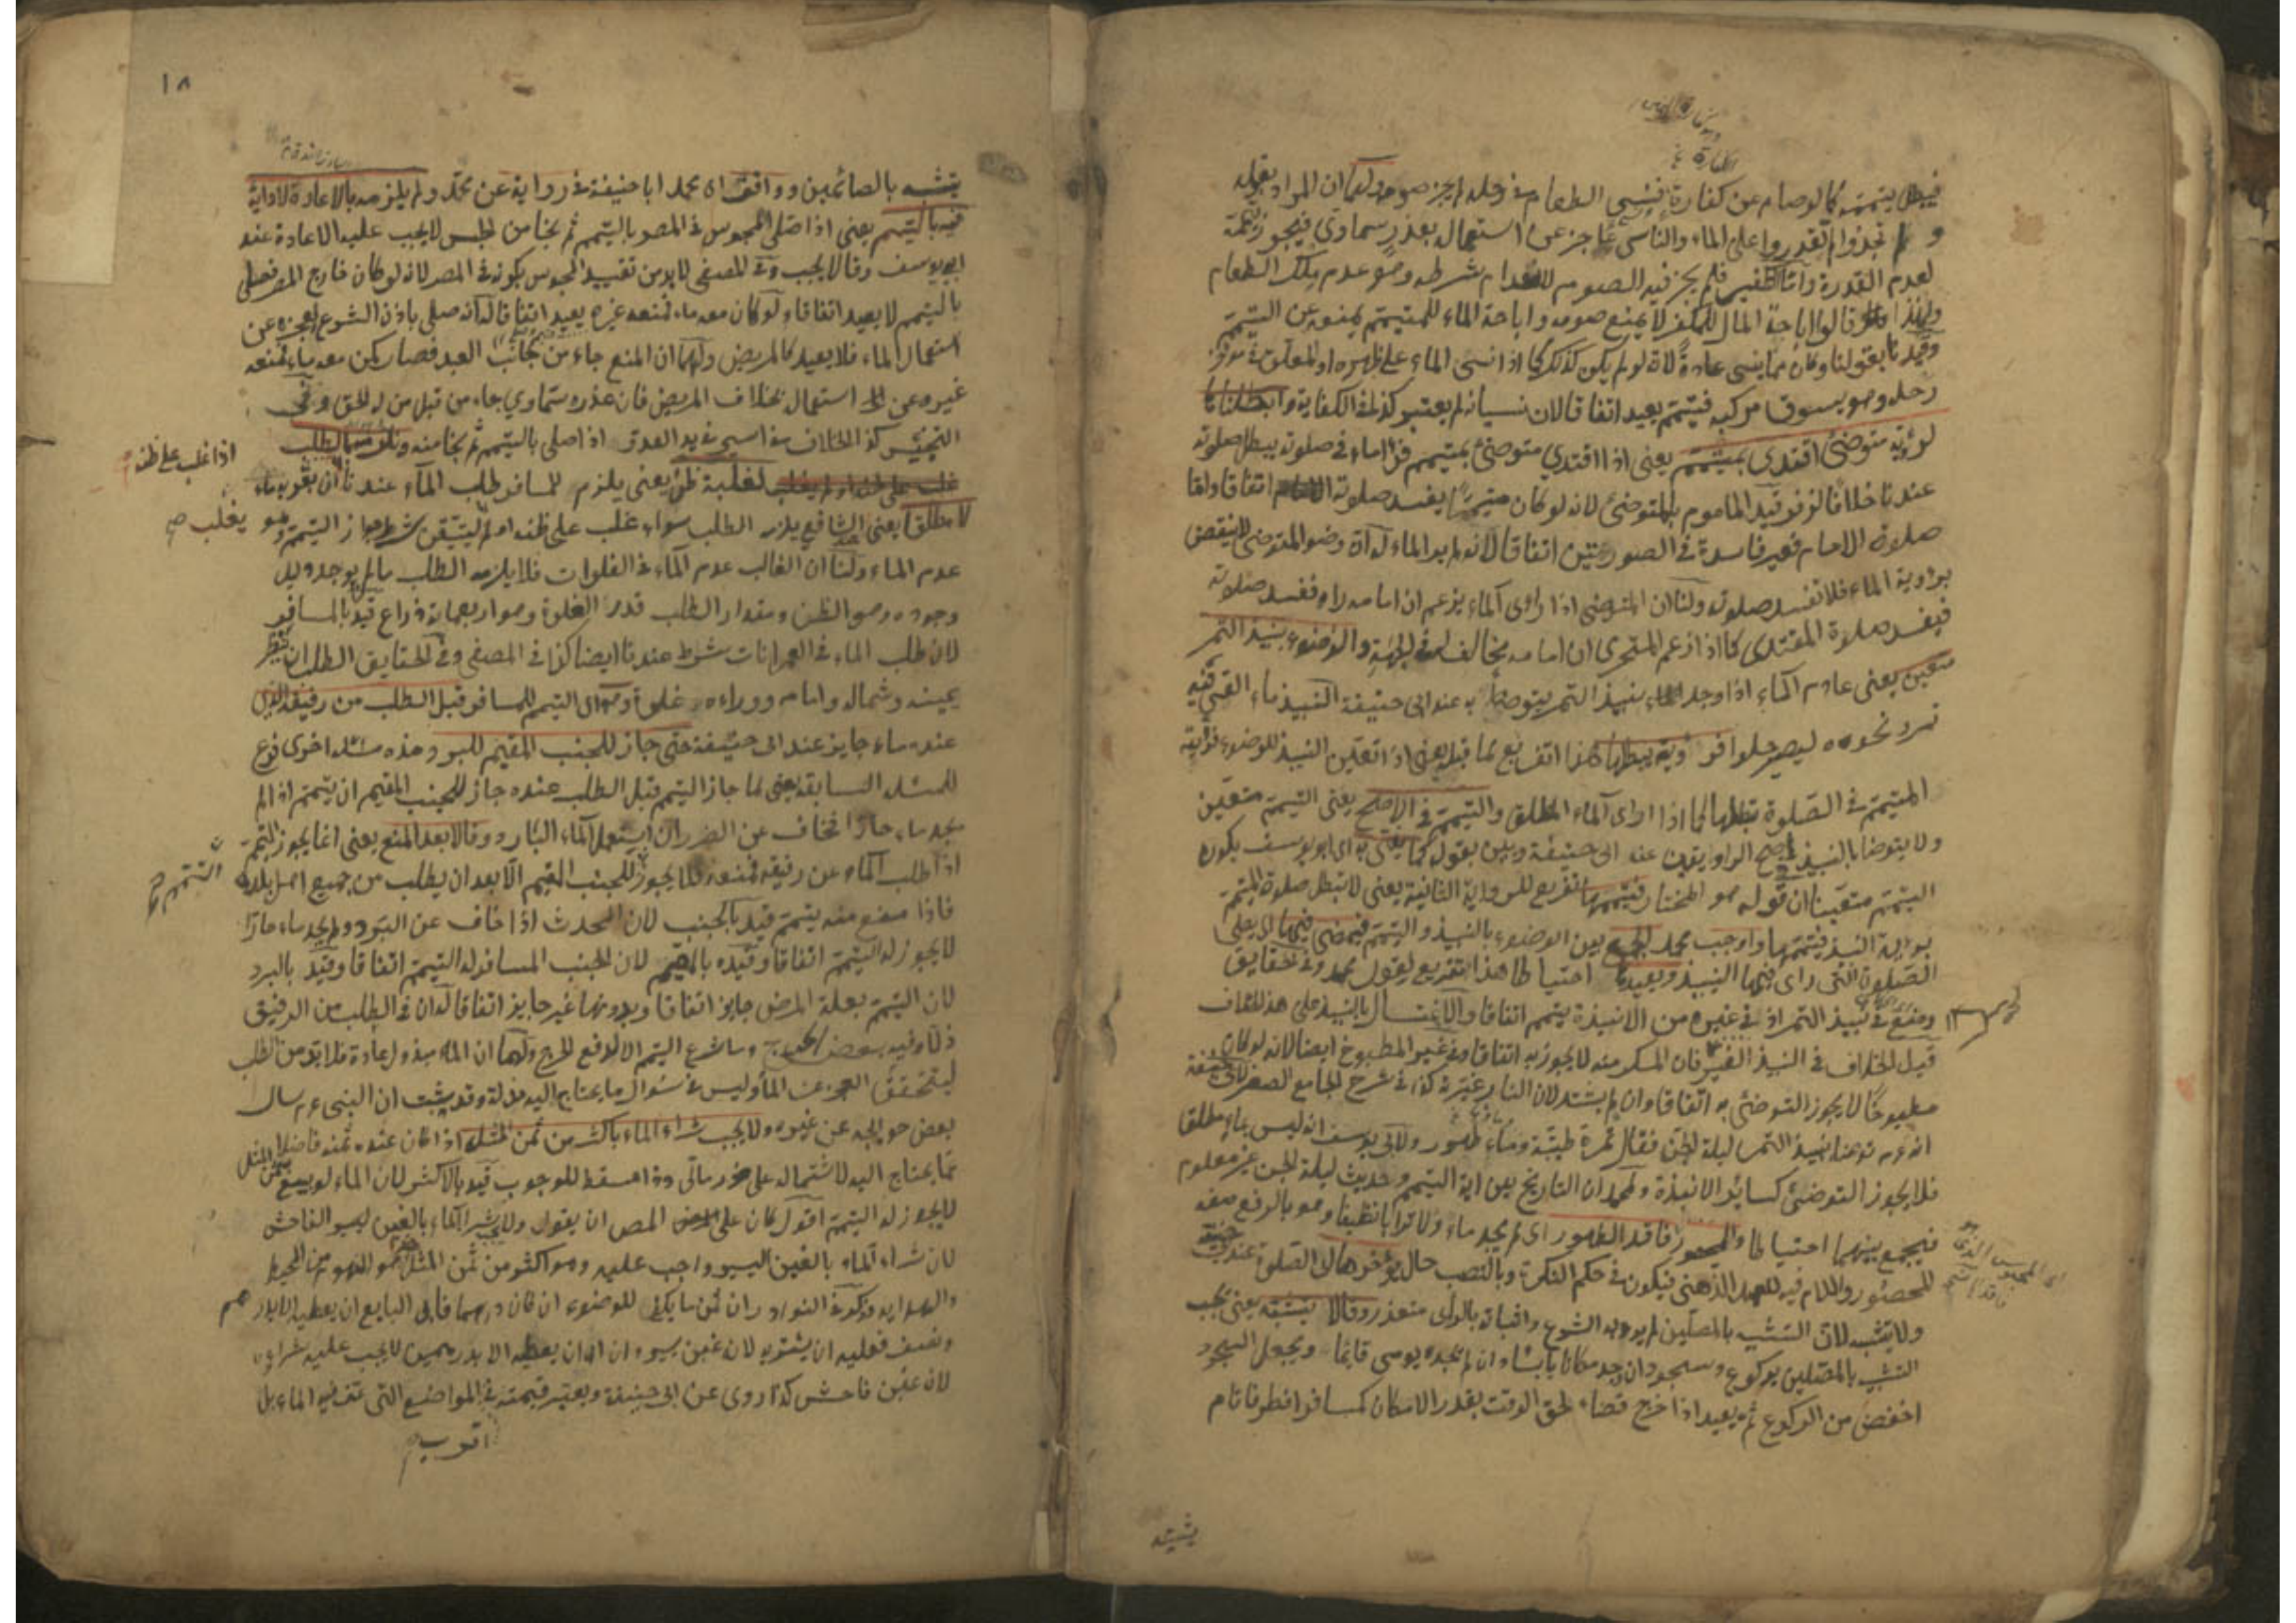 فيبطل تيممه كما لو صام عن كفارة فنسي الطعام في رحله لم يجز صومه ولهما ان المراد بقوله
و لم تجدوا لم تقدروا على الماء والناسي عاجز عن استعمال بعذر سماوي فيجوز تيممه
لعدم القدرة واما التكفير فلم يجز فيه الصوم لانعدام شرطه وهو عدم ملك الطعام
ولهذا قالوا اباحة المال للمكفر لا يمنع صومه واباحة الماء للمتيمم يمنعه عن التيمم
وقيدنا بقولنا وكان مما ينسى عادة لانه لو لم يكن كذلك كما اذا نسي الماء على ظهره او المعلق في مؤخر
رحله وهو يسوق مركبه فتيمم يعيد اتفاقا لان نسيانه لم يعتبر كذا في الكفاية وابطلناها
لرؤية متوضئ اقتدى بمتيمم يعني اذا اقتدى متوضئ بمتيمم فراى ماء في صلوته يبطل صلوته
عندنا خلافا لزفر قيد الماموم بالمتوضئ لانه لو كان متيمما يفسد صلوته اتفاقا واما
صلوة الامام فغير فاسدة في الصورتين اتفاقا لانه لم ير الماء له ان وضوء المتوضئ لا ينتقض
برؤية الماء فلا تفسد صلوته ولنا ان المتوضئ اذا راى الماء يزعم ان امامه راه ففسد صلوته
فيفسد صلوة المقتدى كما اذا زعم المتحرى ان امامه يخالفه في الجهة والوضوء بنبيذ التمر
متعين يعني عادم الماء اذا وجد نبيذ التمر يتوضأ به عند ابى حنيفة النبيذ ماء القي فيه
تمر ونحوه ليصير حلوا فرؤيته يبطلها هذا تفريع لما قبله يعني اذا تعين النبيذ للوضوء فرؤية
المتيمم في الصلوة يبطلها كما اذا راى الماء المطلق والتيمم في الاصح يعني التيمم متعين
ولا يتوضا بالنبيذ في اصح الروايتين عنه ابى حنيفة وبين بقوله كما يفتى به اى ابو يوسف بكون
التيمم متعينا ان قوله هو المختار فيتمها تفريع للرواية الثانية يعني لا تبطل صلوة المتيمم
برؤية النبيذ فيتمها واوجب محمد الجمع بين الوضوء بالنبيذ والتيمم فيمضى فيها اى يصلى
الصلوة التى راى فيها النبيذ ويعيدها احتياطا هذا تفريع لقول محمد وفى الحقايق
وضع في نبيذ التمر اذ في غيره من الانبذة يتيمم اتفاقا والاغتسال بالنبيذ على هذا الخلاف
قيل الخلاف في النبيذ الغير فان المسكر منه لا يجوز به اتفاقا وفي غير المطبوخ ايضا لانه لو كان
مطبوخا لا يجوز التوضئ به اتفاقا وان لم يشتد لان النار غيرته كذا في شرح الجامع الصغير لابى حنيفة
انه عم توضأ بنبيذ التمر ليلة الجن فقال تمرة طيبة وماء طهور ولابى يوسف انه ليس بماء مطلق
فلا يجوز التوضئ كسائر الانبذة ولمحمد ان التاريخ بين اية التيمم وحديث ليلة الجن غير معلوم
فيجمع بينهما احتياطا والمحصور فاقد الطهور اى لم يجد ماء ولا ترابا نظيفا وهو بالرفع صفة
للمحصور واللام فيه للعهد الذهنى فيكون في حكم النكرة وبالنصب حال يؤخرها اى الصلوة عند ابى حنيفة
ولا يتشبه لان التشبه بالمصلين لم يرد به الشرع واثباته بالراى متعذر وقالا يتشبه يعني يجب
التشبه بالمصلين بركوع وسجود ان وجد مكانا يابسا وان لم يجده يومى قائما ويجعل السجود
اخفض من الركوع ثم يعيد اذا خرج قضاء لحق الوقت بقدر الامكان كمسافر افطر فاقام
يتشبه
١٨
يتشبه بالصائمين ووافق محمد ابا حنيفة في رواية عن محمد ولم يلزمه بالاعادة لاداية
فيه بالتيمم يعني اذا صلى المحبوس في المصر بالتيمم ثم نجا من الحبس لا يجب عليه الاعادة عند
ابى يوسف وقالا يجب وفى المصفى لابد من تقييد المحبوس بكونه في المصر لانه لو كان خارج المصر فصلى
بالتيمم لا يعيد اتفاقا ولو كان معه ماء فمنعه غيره يعيد اتفاقا له انه صلى باذن الشرع لعجزه عن
استعمال الماء فلا يعيد كالمريض ولهما ان المنع جاء من جانب العبد فصار كمن معه ماء فمنعه
غيره عن استعمال بخلاف المريض فان عذره سماوي جاء من قبل من له الحق وفى
التجنيس كذا الخلاف في اسير في يد العدو اذا صلى بالتيمم ثم نجا منه ونلزمه الطلب
اذا غلب على ظنه
لغلبة ظن يعني يلزم للمسافر طلب الماء عندنا ان بقربه ماء
لا مطلقا يعني الشافعي يلزم الطلب سواء غلب على ظنه او لم يغلب ليتيقن شرط جواز التيمم وهو
عدم الماء ولنا ان الغالب عدم الماء في الفلوات فلا يلزمه الطلب ما لم يوجد دليل
وجوده وهو الظن ومقدار الطلب قدر الغلوة وهو اربعمائة ذراع قيد بالمسافر
لان طلب الماء في العمرانات شرط عندنا ايضا كذا في المصفى وفى الحقايق الطلب ان ينظر
يمينه وشماله وامامه ووراءه غلوة وهو اى التيمم للمسافر قبل الطلب من رفيقه الذى
عنده ماء جايز عند ابى حنيفة حتى جاز للجنب المقيم للبرد هذه مسئلة اخرى فرع
للمسئلة السابقة يعني لما جاز التيمم قبل الطلب عنده جاز للجنب المقيم ان يتيمم اذا لم
يجد ماء حارا فخاف من الضرر ان استعمل الماء البارد وقالا بعد المنع يعني انما يجوز التيمم
اذا طلب الماء عن رفيقه فمنعه فلا يجوز للجنب المقيم الا بعد ان يطلب من جميع اهل بلده
التيمم صح
فاذا منع منه يتيمم قيد بالجنب لان المحدث اذا خاف عن البرد ولم يجد ماء حارا
لا يجوز له التيمم اتفاقا وقيده بالمقيم لان الجنب المسافر له التيمم اتفاقا وقيد بالبرد
لان التيمم بعلة المرض جايز اتفاقا وبدونها غير جايز اتفاقا له ان في الطلب من الرفيق
ذلا وفيه بعض الحرج وما شرع التيمم الا لدفع الحرج ولهما ان الماء مبذول عادة فلابد من الطلب
ليتحقق العجز عن الماء وليس في سؤال ما يحتاج اليه مذلة وقد ثبت ان النبى عم سال
بعض حوائجه عن غيره ولا يجب شراء الماء باكثر من ثمن المثل اذا كان عنده ثمنه فاضلا
عما يحتاج اليه لاشتماله على ضرر مالى وذا مسقط للوجوب قيد بالاكثر لان الماء لو بيع بثمن المثل
لا يجوز له التيمم اقول كان على المص ان يقول ولا يجب شراء الماء بالغبن ليس الفاحش
لان شراء الماء بالغبن اليسير واجب عليه وهو اكثر من ثمن المثل
والهداية مذكور في النوادر ان ثمن ما يكفى للوضوء ان كان درهما فابى البايع ان يعطيه الا بدرهم
ونصف فعليه ان يشتريه لان غبن يسير وان ابى ان يعطيه الا بدرهمين لا يجب عليه شراءه
لانه غبن فاحش كذا روى عن ابى حنيفة ويعتبر قيمته في المواضع التى عز فيه الماء بل
اقرب